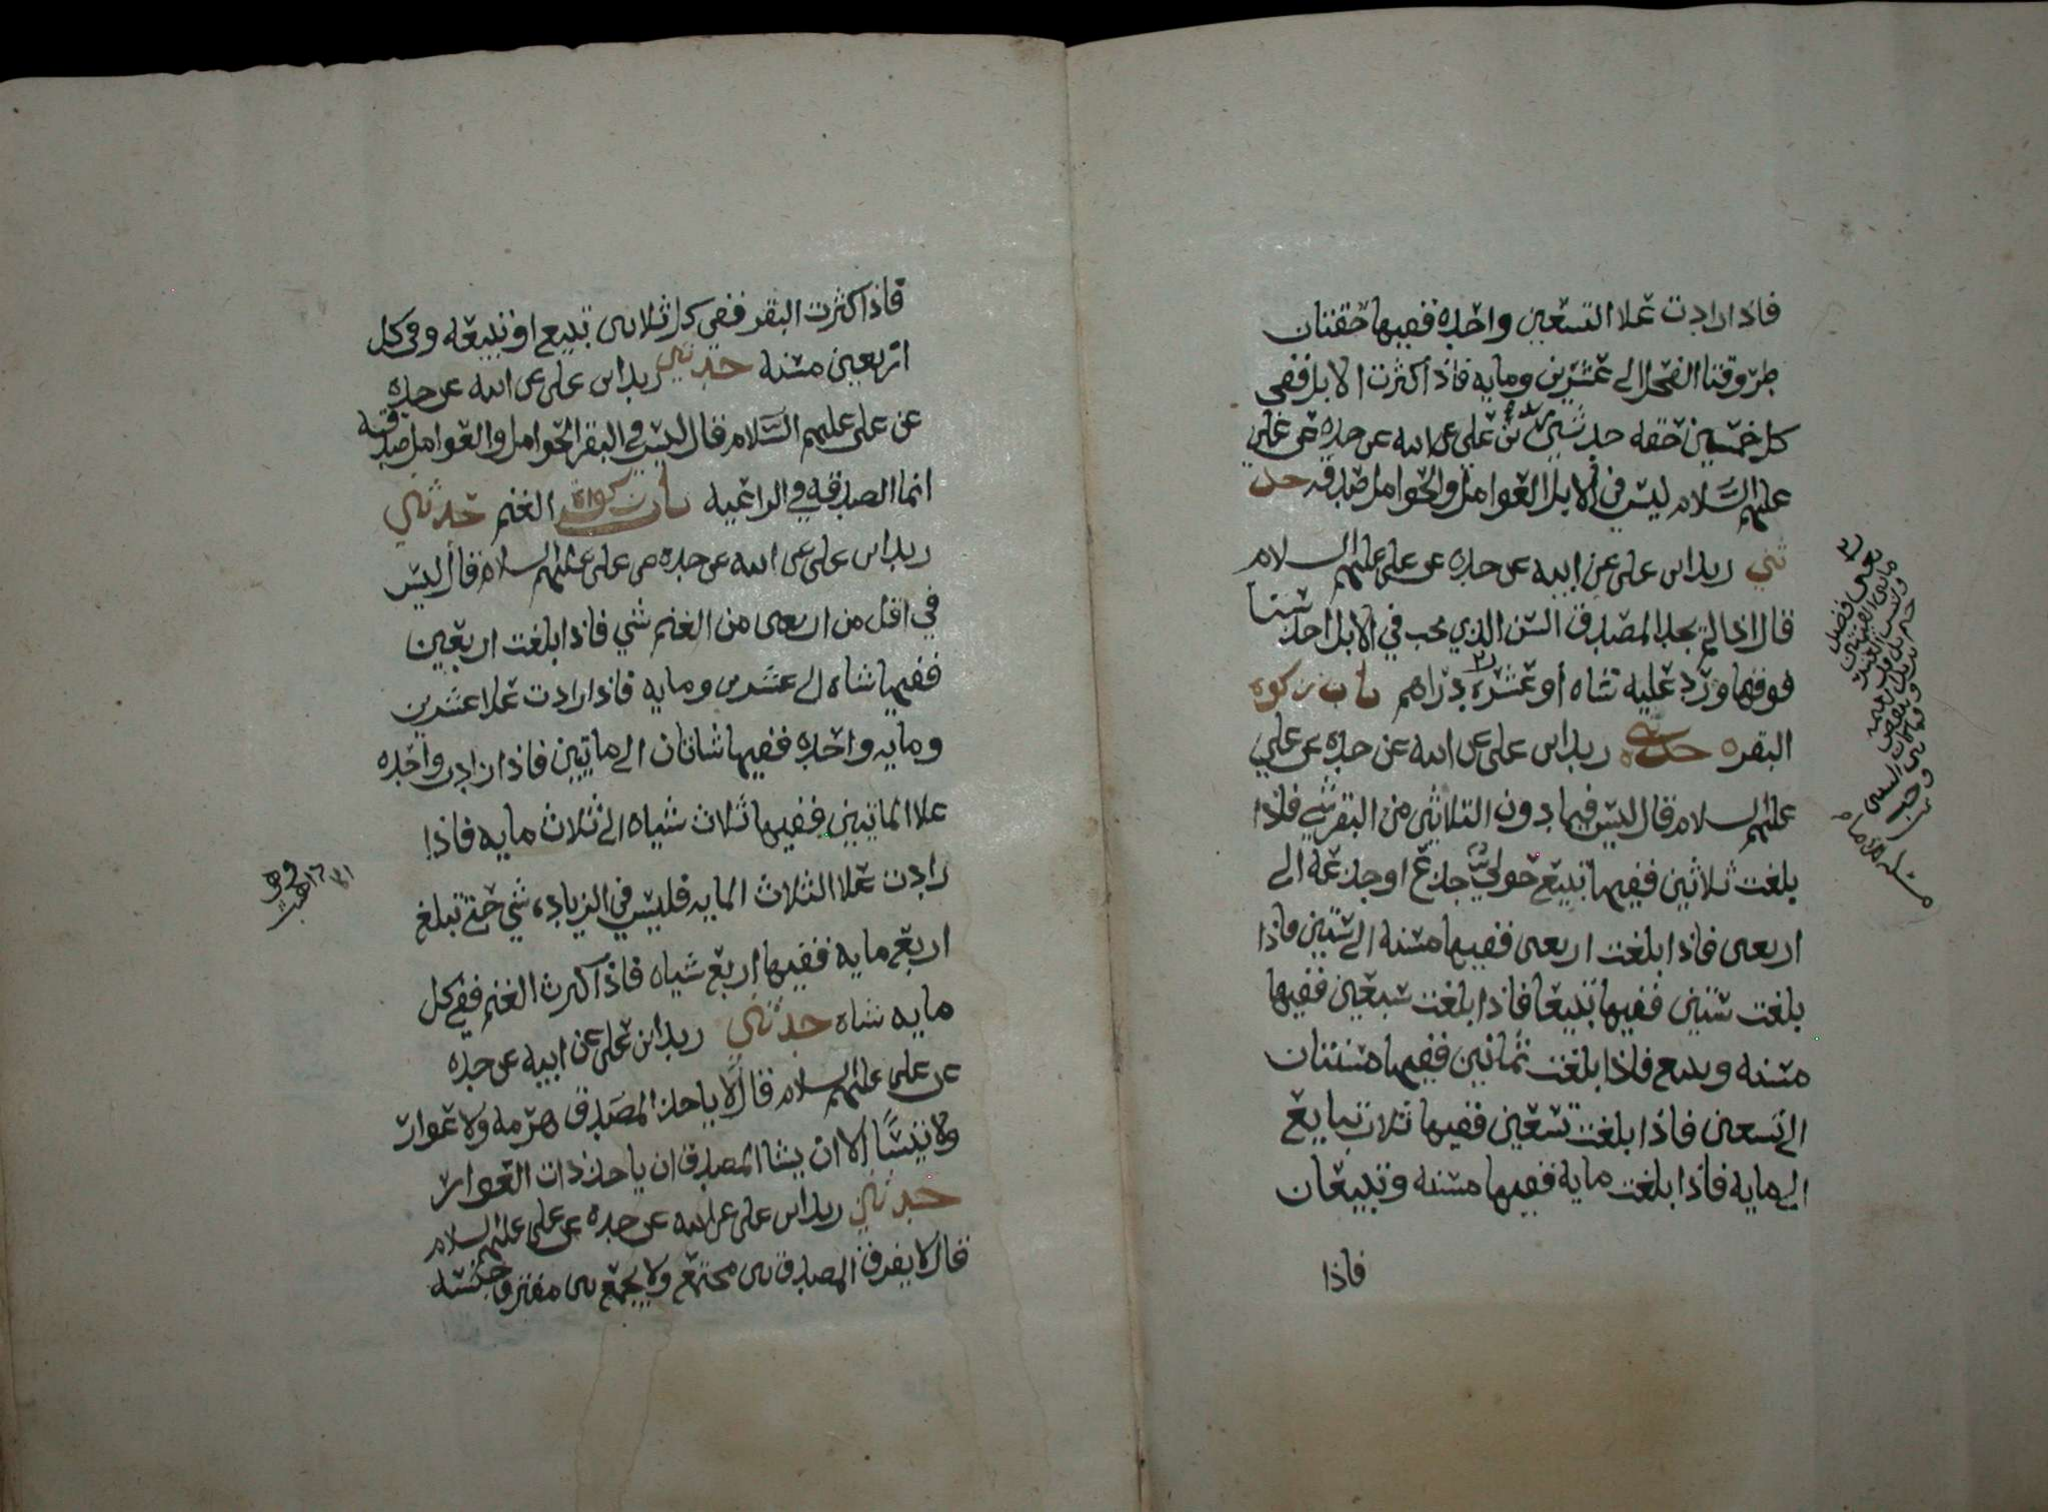 فاذا زادت علا التسعين واحده ففيها حقتان
طروقتا الفحل الى عشرين ومايه فاذا كثرت الابل ففي
كل خمسين حقه حدثني زيد بن علي عن ابيه عن جده عن علي
عليهم السلام ليس في الابل العوامل والحوامل صدقه حد
ثني زيد ابن علي عن ابيه عن جده عن علي عليهم السلام
قال اذا لم يجد المصدق السن الذي يجب في الابل اخذ سنا
فوقها ورد عليه شاه او عشره دراهم باب زكوة
البقره حدثني زيد ابن علي عن ابيه عن جده عن علي
عليهم السلام قال ليس فيما دون الثلاثين من البقر شي فاذا
بلغت ثلاثين ففيها تبيع حولي جذع او جذعه الى
اربعين فاذا بلغت اربعين ففيها مسنه الى ستين فاذا
بلغت ستين ففيها تبيعا فاذا بلغت سبعين ففيها
مسنه وتبيع فاذا بلغت ثمانين ففيها مسنتان
الى تسعين فاذا بلغت تسعين ففيها ثلاث تبايع
الى مايه فاذا بلغت مايه ففيها مسنه وتبيعان
فاذا
فاذا كثرت البقر ففي كل ثلاثين تبيع او تبيعه وفي كل
اربعين مسنه حدثني زيد ابن علي عن ابيه عن جده
عن علي عليهم السلام قال ليس في البقر الحوامل والعوامل صدقه
انما الصدقه في الراعيه باب زكواة الغنم حدثني
زيد ابن علي عن ابيه عن جده عن علي عليهم السلام قال ليس
في اقل من اربعين من الغنم شي فاذا بلغت اربعين
ففيها شاه الى عشرين ومايه فاذا زادت علا عشرين
ومايه واحده ففيها شاتان الى مايتين فاذا زادت واحده
علا المايتين ففيها ثلاث شياه الى ثلاث مايه فاذا
زادت علا الثلاث المايه فليس في الزياده شي حتى تبلغ
اربع مايه ففيها اربع شياه فاذا كثرت الغنم ففي كل
مايه شاه حدثني زيد ابن علي عن ابيه عن جده
عن علي عليهم السلام قال لا ياخذ المصدق هرمه ولا عوار
ولا تيسا الا ان يشا المصدق ان ياخذ ذات العوار
حدثني زيد ابن علي عن ابيه عن جده عن علي عليهم السلام
قال لا يفرق المصدق بين مجتمع ولا يجمع بين مفترق خشية